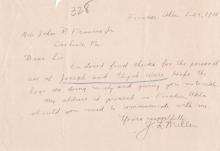 328
Mr. John R.
Carlisle Pa
Dear Sir
Enclosed find checks for the personal
use of Joseph and Lloyd Hope the
boys are doing nicely and giving you
My address at present is
should you need to communicate with me.
Yours respectfully
J. L. Miller